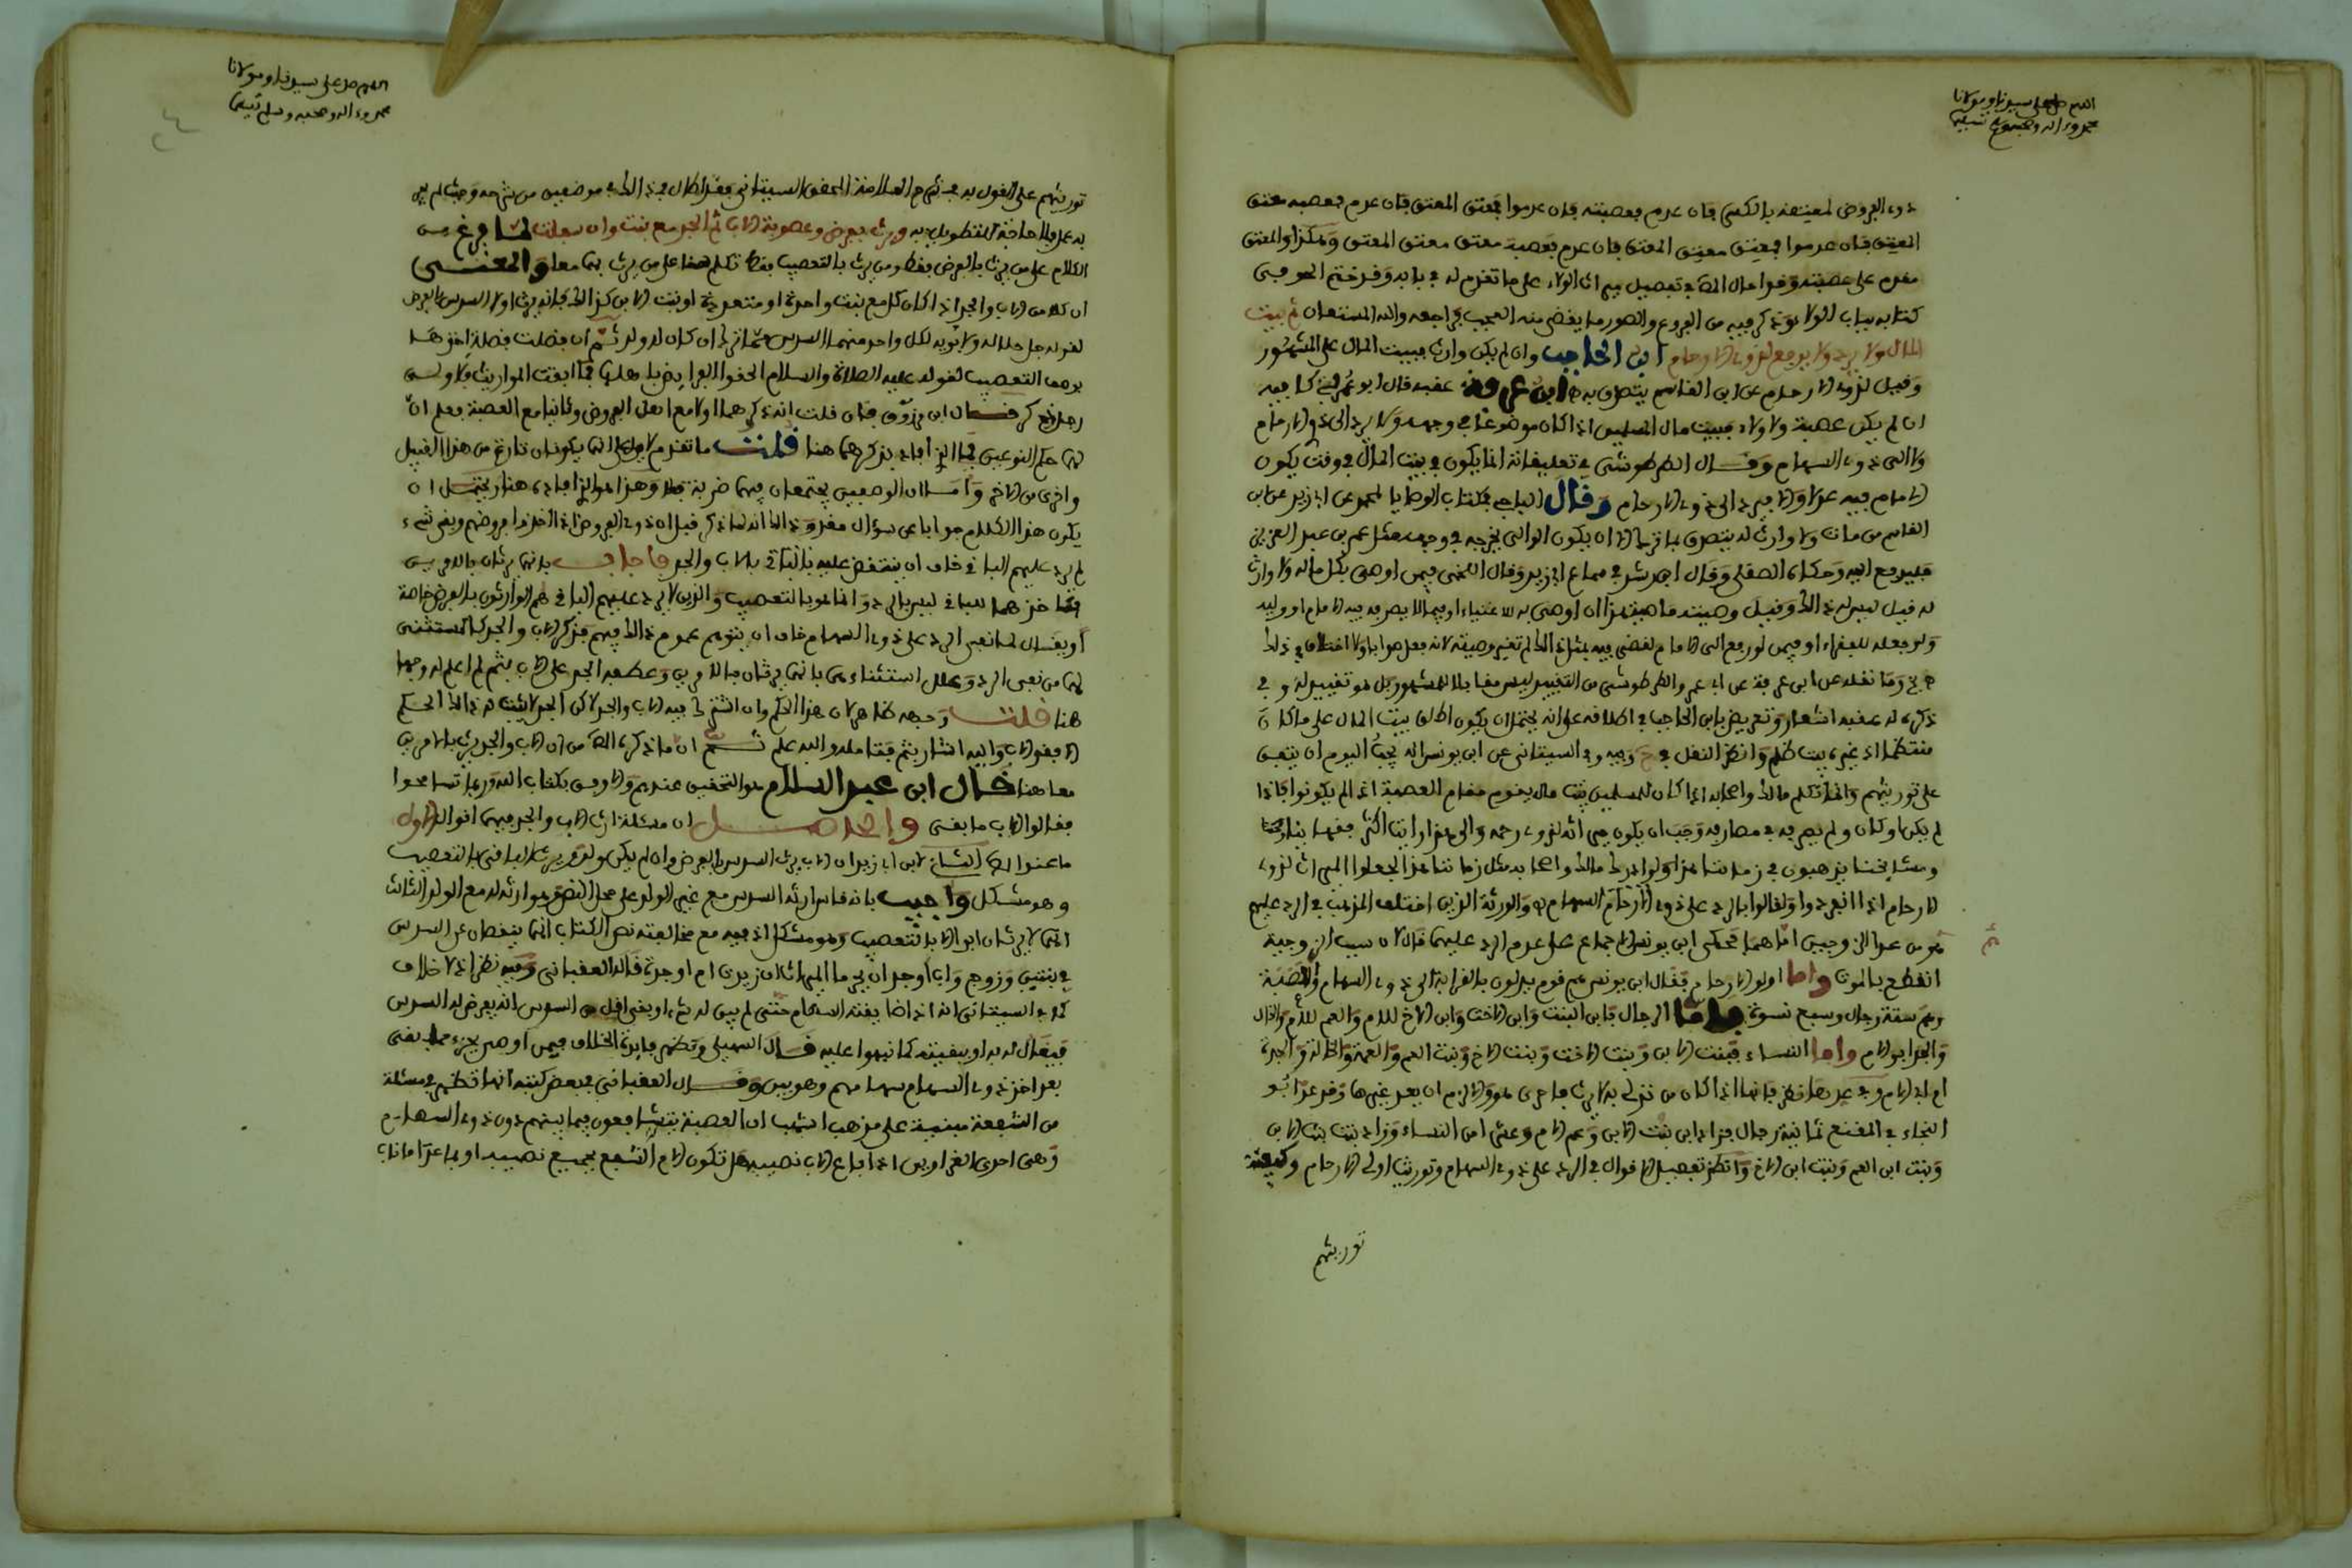 اللهم صل على سيدنا ومولانا
محمد وءاله وصحبه وسلم تسليما
ذوي الفروض لمعيتقه بالكسر فان عدم فعصبته فان عدموا فمعتق المعتق فان عدم فعصبة معتق
المعتق فان عدموا فمعتق معتق المعتق فان عدم فعصبة معتق معتق المعتق وهكذا والمعتق
مقدم على عصبته وقد
كتابه بباب الولاء وذكر فيه من الفروع والصور ما يقضى منه العجب فراجعه والله المستعان ثم بيت
المال ولا يرد ولا يدفع لذوي الارحام ابن الحاجب وان لم يكن وارث فبيت المال على المشهور
وقيل لذوي الارحام عن ابن القاسم يتصدق به ابن عرفة عقبه قال ابو عمر في كافيه
ان لم يكن عصبة ولا ولاء فبيت مال المسلمين اذا كان موضوعا في وجهه ولا يرد الى ذوي الارحام
ولا الى ذوي السهام وقال الطرطوشي في تعليقاته انما يكون في بيت المال في وقت يكون
الامام فيه عدلا والا فيرد الى ذوي الارحام وقال الباجي في كتاب الوصايا لمحمد عن ابي زيد عن ابن
القاسم من مات ولا وارث له يتصدق بما ترك الا ان يكون الوالي يخرجه في وجهه مثل عمر بن عبد العزيز
فليدفع اليه وحكاه الصقلي وقال ابن رشد في سماع ابي زيد وقال اللخمي فيمن اوصى بكل ماله ولا وارث
له فقيل ليس له ذلك وقيل وصيته ماضية هذا ان اوصى به للاغنياء او فيما لا يصرفه فيه الامام او وليه
ولو جعله للفقراء او فيمن لو رفع الى الامام لقضى فيه بمثل ذلك لم تغير وصيته لانه فعل صوابا ولا اختلاف في ذلك
وما نقله عن ابن عرفة عن ابي عمر والطرطوشي من التقييد ليس مقابلا للمشهور بل هو تقييد له وفي
ذكره له عقبه اشعار وتعريض بابن الحاجب في اطلاقه على انه يحتمل ان يكون اطلق بيت المال على ما كان
منتظما اذ غيره بيت ظلم وانظر النقل في ح وفيه وفي السيتاني عن ابن يونس انه يجب اليوم ان يتفق
على توريثهم وانما تكلم مالك واصحابه اذا كان للمسلمين بيت مال يقوم مقام العصبة اذا لم يكونوا فاذا
لم يكن او كان ولم يصرفه في مصارفه وجب ان يكون ميراثه لذوي رحمه والى هذا رايت اكثر فقهائنا
ومشايخنا يذهبون في زماننا هذا ولو ادرك مالك واصحابه مثل زماننا هذا لجعلوا الميراث لذوي
الارحام اذا انفردوا ولقالوا بالرد على ذوي السهام والورثة الذين اختلف المذهب في الرد عليهم
هو من عدا الزوجين اما هما فحكى ابن يونس الاجماع على عدم الرد عليهما قال لان سبب الزوجية
انقطع بالموت واما اولو الارحام فقال ابن يونس هم قوم يدلون بالقرابة الى ذوي السهام والعصبة
وهم ستة رجال وسبع نسوة فاما الرجال فابن البنت وابن الاخت وابن الاخ للام والعم للام والخال
والجد ابو الام واما النساء فبنت الابن وبنت الاخت وبنت الاخ وبنت العم والعمة والخالة والجدة
ام اب الام
النجاء في المقنع ثمانية رجال فزاد ابن بنت الابن وعم الام وعشرا من النساء وزاد بنت بنت الابن
وبنت ابن العم وبنت ابن الاخ وانظر تفصيل الاقوال في الرد على ذوي السهام وتوريث اولي الارحام وكيفية
توريثهم
اللهم صل على سيدنا ومولانا
محمد وءاله وصحبه وسلم تسليما
توريثهم على القول به في شرح العلامة المحقق السيتاني فقد اطال في ذلك في موضعين من شرحه وحيث لم يجر
به عمل فلا حاجة للتطويل به ويرث بفرض وعصوبة الاب ثم الجد مع بنت وان سفلت لما فرغ من
الكلام على من يرث بالفرض فقط ومن يرث بالتعصيب فقط تكلم هنا على من يرث بهما معا والمعنى
ان كلا من الاب والجد اذا كان كل مع بنت واحدة او متعددة او بنت الابن كذلك فانه يرث اولا السدس بالفرض
لقوله جل جلاله ولابويه لكل واحد منهما السدس مما ترك ان كان له ولد ثم ان فضلت فضلة اخذها
بوصف التعصيب لقوله عليه الصلاة والسلام الحقوا الفرايض باهلها فما ابقت المواريث فلاولى
رجل ذكر قال ابن مرزوق فان قلت انه ذكرهما اولا مع اهل الفروض وثانيا مع العصبة فعلم ان
لهما حكم النوعين فما الذي افاد بذكرهما هنا قلت ما تقدم لا يدل انما يكونان تارة من هذا القبيل
واخرى من الاخر واما ان الوصفين يجتمعان فيهما ضربة فلا وهذا هو الذي افاده هنا ويحتمل ان
يكون هذا الكلام جوابا عن سؤال مقدر وذلك انه لما ذكر قبل ان ذوي الفروض اذا اخذوا فروضهم وبقي شيء
لم يرد عليهم الباقي خاف ان ينتقض عليه بالباقي بالاب والجد فاجاب بانهما يرثان بالامرين
فما اخذهما للباقي ليس بالرد وانما هو بالتعصيب والذين لا يرد عليهم الباقي هم الوارثون بالفرض خاصة
او يقال لما نفى الرد على ذوي السهام خاف ان يتوهم عموم ذلك فيهم فذكر الاب والجد كالمستثنى
لهما من نفي الرد وعلل استثناءهما بانهما يرثان بالامرين وعطف الجد على الاب بثم لم اعلم له وجها
هنا قلت وجهه ظاهر لان هذا الحكم وان اشترك فيه الاب والجد لكن الجد لا يثبت له ذلك الحكم
الا بفقد الاب واليه اشار بثم فتامله والله اعلم ثم ان ما ذكره المص من ان الاب والجد يرث بالامرين
معا هنا قال ابن عبد السلام هو التحقيق عندهم والاوفق بكتاب الله وربما تسامحوا
فقالوا للاب ما بقي والحاصل ان مسئلة ارث الاب والجد فيهما اقوال الاول
ما عند المص الثاني لابن ابي زيد ان الاب يرث السدس بالفرض وان لم يكن ولد ويرث الباقي بالتعصيب
وهو مشكل واجيب بانه قاس ارثه السدس مع غير الولد على محل النص وهو ارثه له مع الولد الثالث
انما لا يرثان ابدا الا بالتعصيب وهو مشكل اذ فيه مع مخالفته نص الكتاب انما ينقصان عن السدس
في بنتين وزوج واب او جد
كلام السيتاني انه اذا ضايقته السهام حتى لم يبق له شيء او بقي اقل من السدس انه يفرض له السدس
فيقال له به او ببقيته كما نبهوا عليه قال السهيلي وتظهر فايدة الخلاف فيمن اوصى بجزء مما يبقى
بعد اخذ ذوي السهام سهامهم وهو بين وقال العقباني في بعض كتبه انها تظهر في مسئلة
من الشفعة مبنية على مذهب اشهب ان العصبة يتشافعون فيما بينهم دون ذوي السهام
وهي احدى الغراوين اذا باع الاب نصيبه هل تكون الام اشفع بجميع نصيبه او بما عدا ما ناب